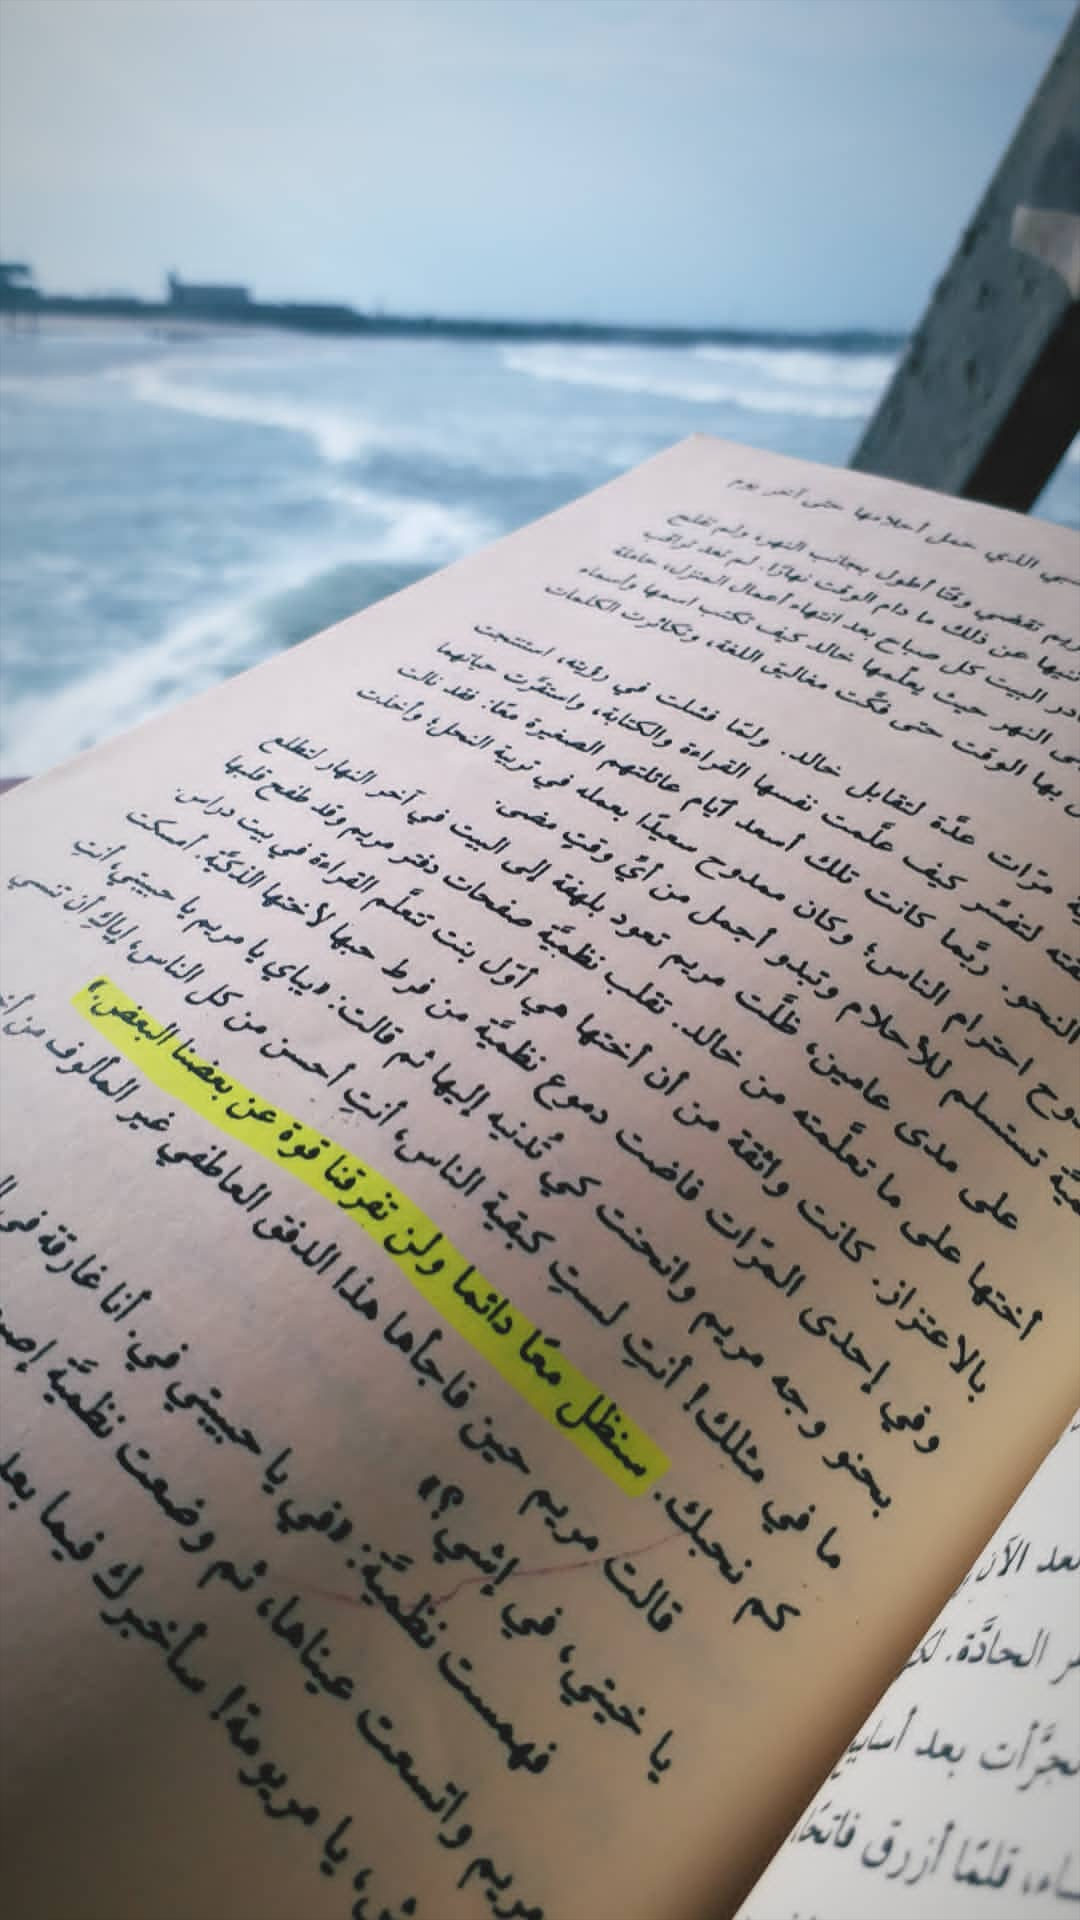 الذي حمل أحلامها حتى آخر يوم
تقضي وقتًا أطول بجانب النهر، ولم تفلح
عن ذلك ما دام الوقت نهارًا. لم تعد تراقب
البيت كل صباح بعد انتهاء أعمال المنزل، حاملة
النهر حيث يعلّمها خالد كيف تكتب اسمها وأسماء
بها الوقت حتى فكّت مغاليق اللغة، وتكاثرت الكلمات
مرّات عدّة لتقابل خالد. ولمّا فشلت في رؤيته، استنتجت
لتفسّر كيف علّمت نفسها القراءة والكتابة، واستقرّت حياتهما
النحو. ربّما كانت تلك أسعد أيّام عائلتهم الصغيرة معًا: فقد نالت
احترام الناس؛ وكان ممدوح سعيدًا بعمله في تربية النحل؛ وأخذت
تستسلم للأحلام وتبدو أجمل من أيِّ وقتٍ مضى.
على مدى عامين، ظلَّت مريم تعود بلهفة إلى البيت في آخر النهار لتطلع
أختها على ما تعلَّمته من خالد. تقلب نظميَّة صفحات دفتر مريم وقد طفح قلبها
بالاعتزاز. كانت واثقة من أن أختها هي أوّل بنت تتعلَّم القراءة في بيت دراس.
وفي إحدى المرّات فاضت دموع نظميَّة من فرط حبها لأختها الذكيَّة. أمسكت
بحنو وجه مريم وانحنت كي تُدنيه إليها ثم قالت: «يباي يا مريم يا حبيبتي، أنتِ
ما في مثلك! أنتِ لستِ كبقية الناس، أنتِ أحسن من كل الناس، إياكِ أن تنسي
كم نحبك. سنظل معًا دائما ولن تفرقنا قوة عن بعضنا البعض.»
قالت مريم حين فاجأها هذا الدفق العاطفي غير المألوف من
يا خيتي، في إشي؟»
فهمست نظميَّة: «في يا حبيبتي في. أنا غارقة في
مريم واتسعت عيناها، ثم وضعت نظميَّة
يا مريومة! سأخبرك فيما بعد
بعد الآن
الحادَّة.
تجرَّأت بعد أسابيع
قلمًا أزرق فاتحًا،